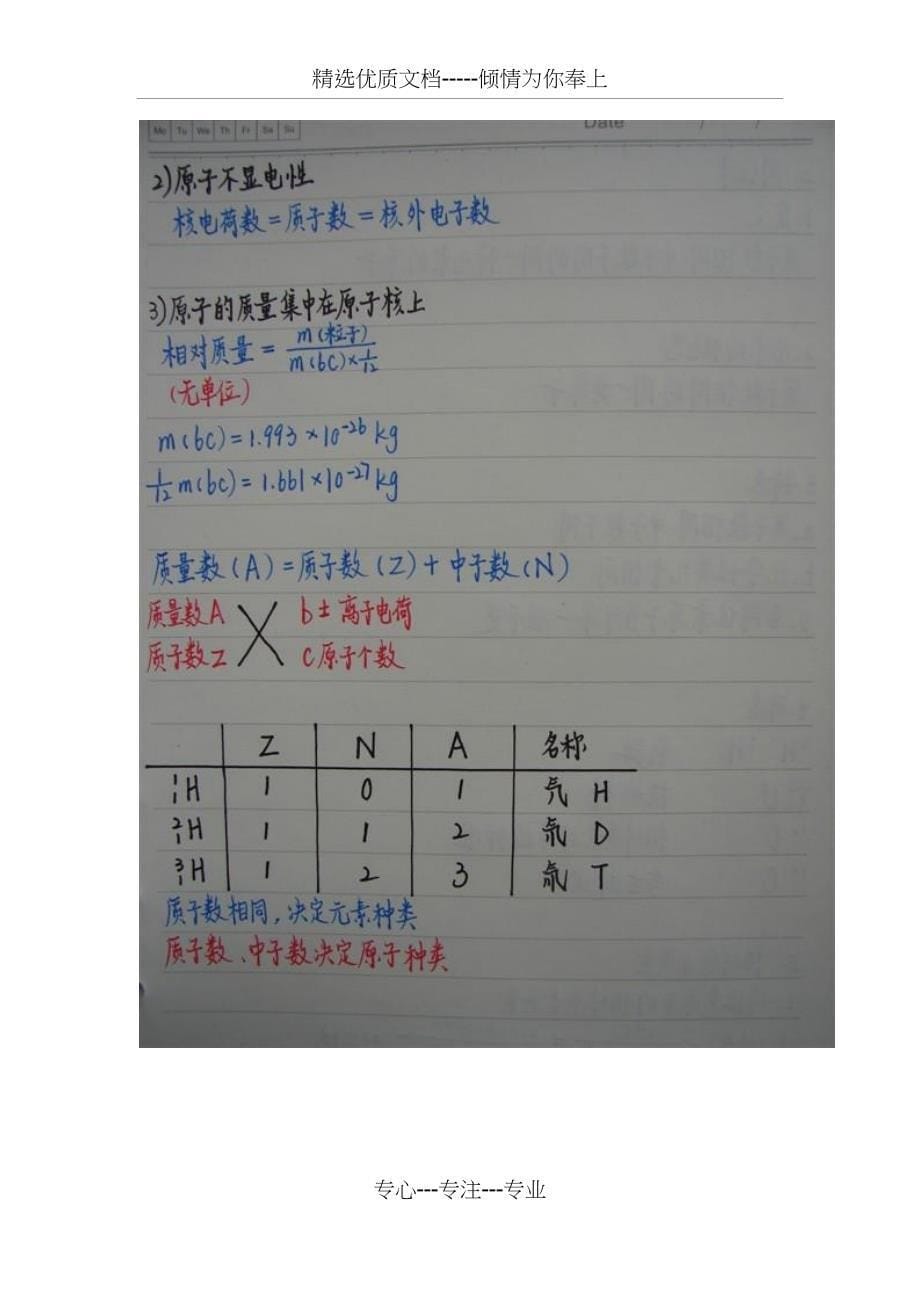 精选优质文档-----倾情为你奉上
Mo Tu We Th Fr Sa Su Date / /
2)原子不显电性
核电荷数=质子数=核外电子数
3)原子的质量集中在原子核上
相对质量= m(粒子) / m(6C)×1/12
(无单位)
m(6C)=1.993×10⁻²⁶kg
1/12 m(6C)=1.661×10⁻²⁷kg
质量数(A)=质子数(Z)+中子数(N)
质量数A b± 离子电荷
质子数Z c原子个数
Z N A 名称
¹₁H 1 0 1 氕 H
²₁H 1 1 2 氘 D
³₁H 1 2 3 氚 T
质子数相同,决定元素种类
质子数、中子数决定原子种类
专心---专注---专业